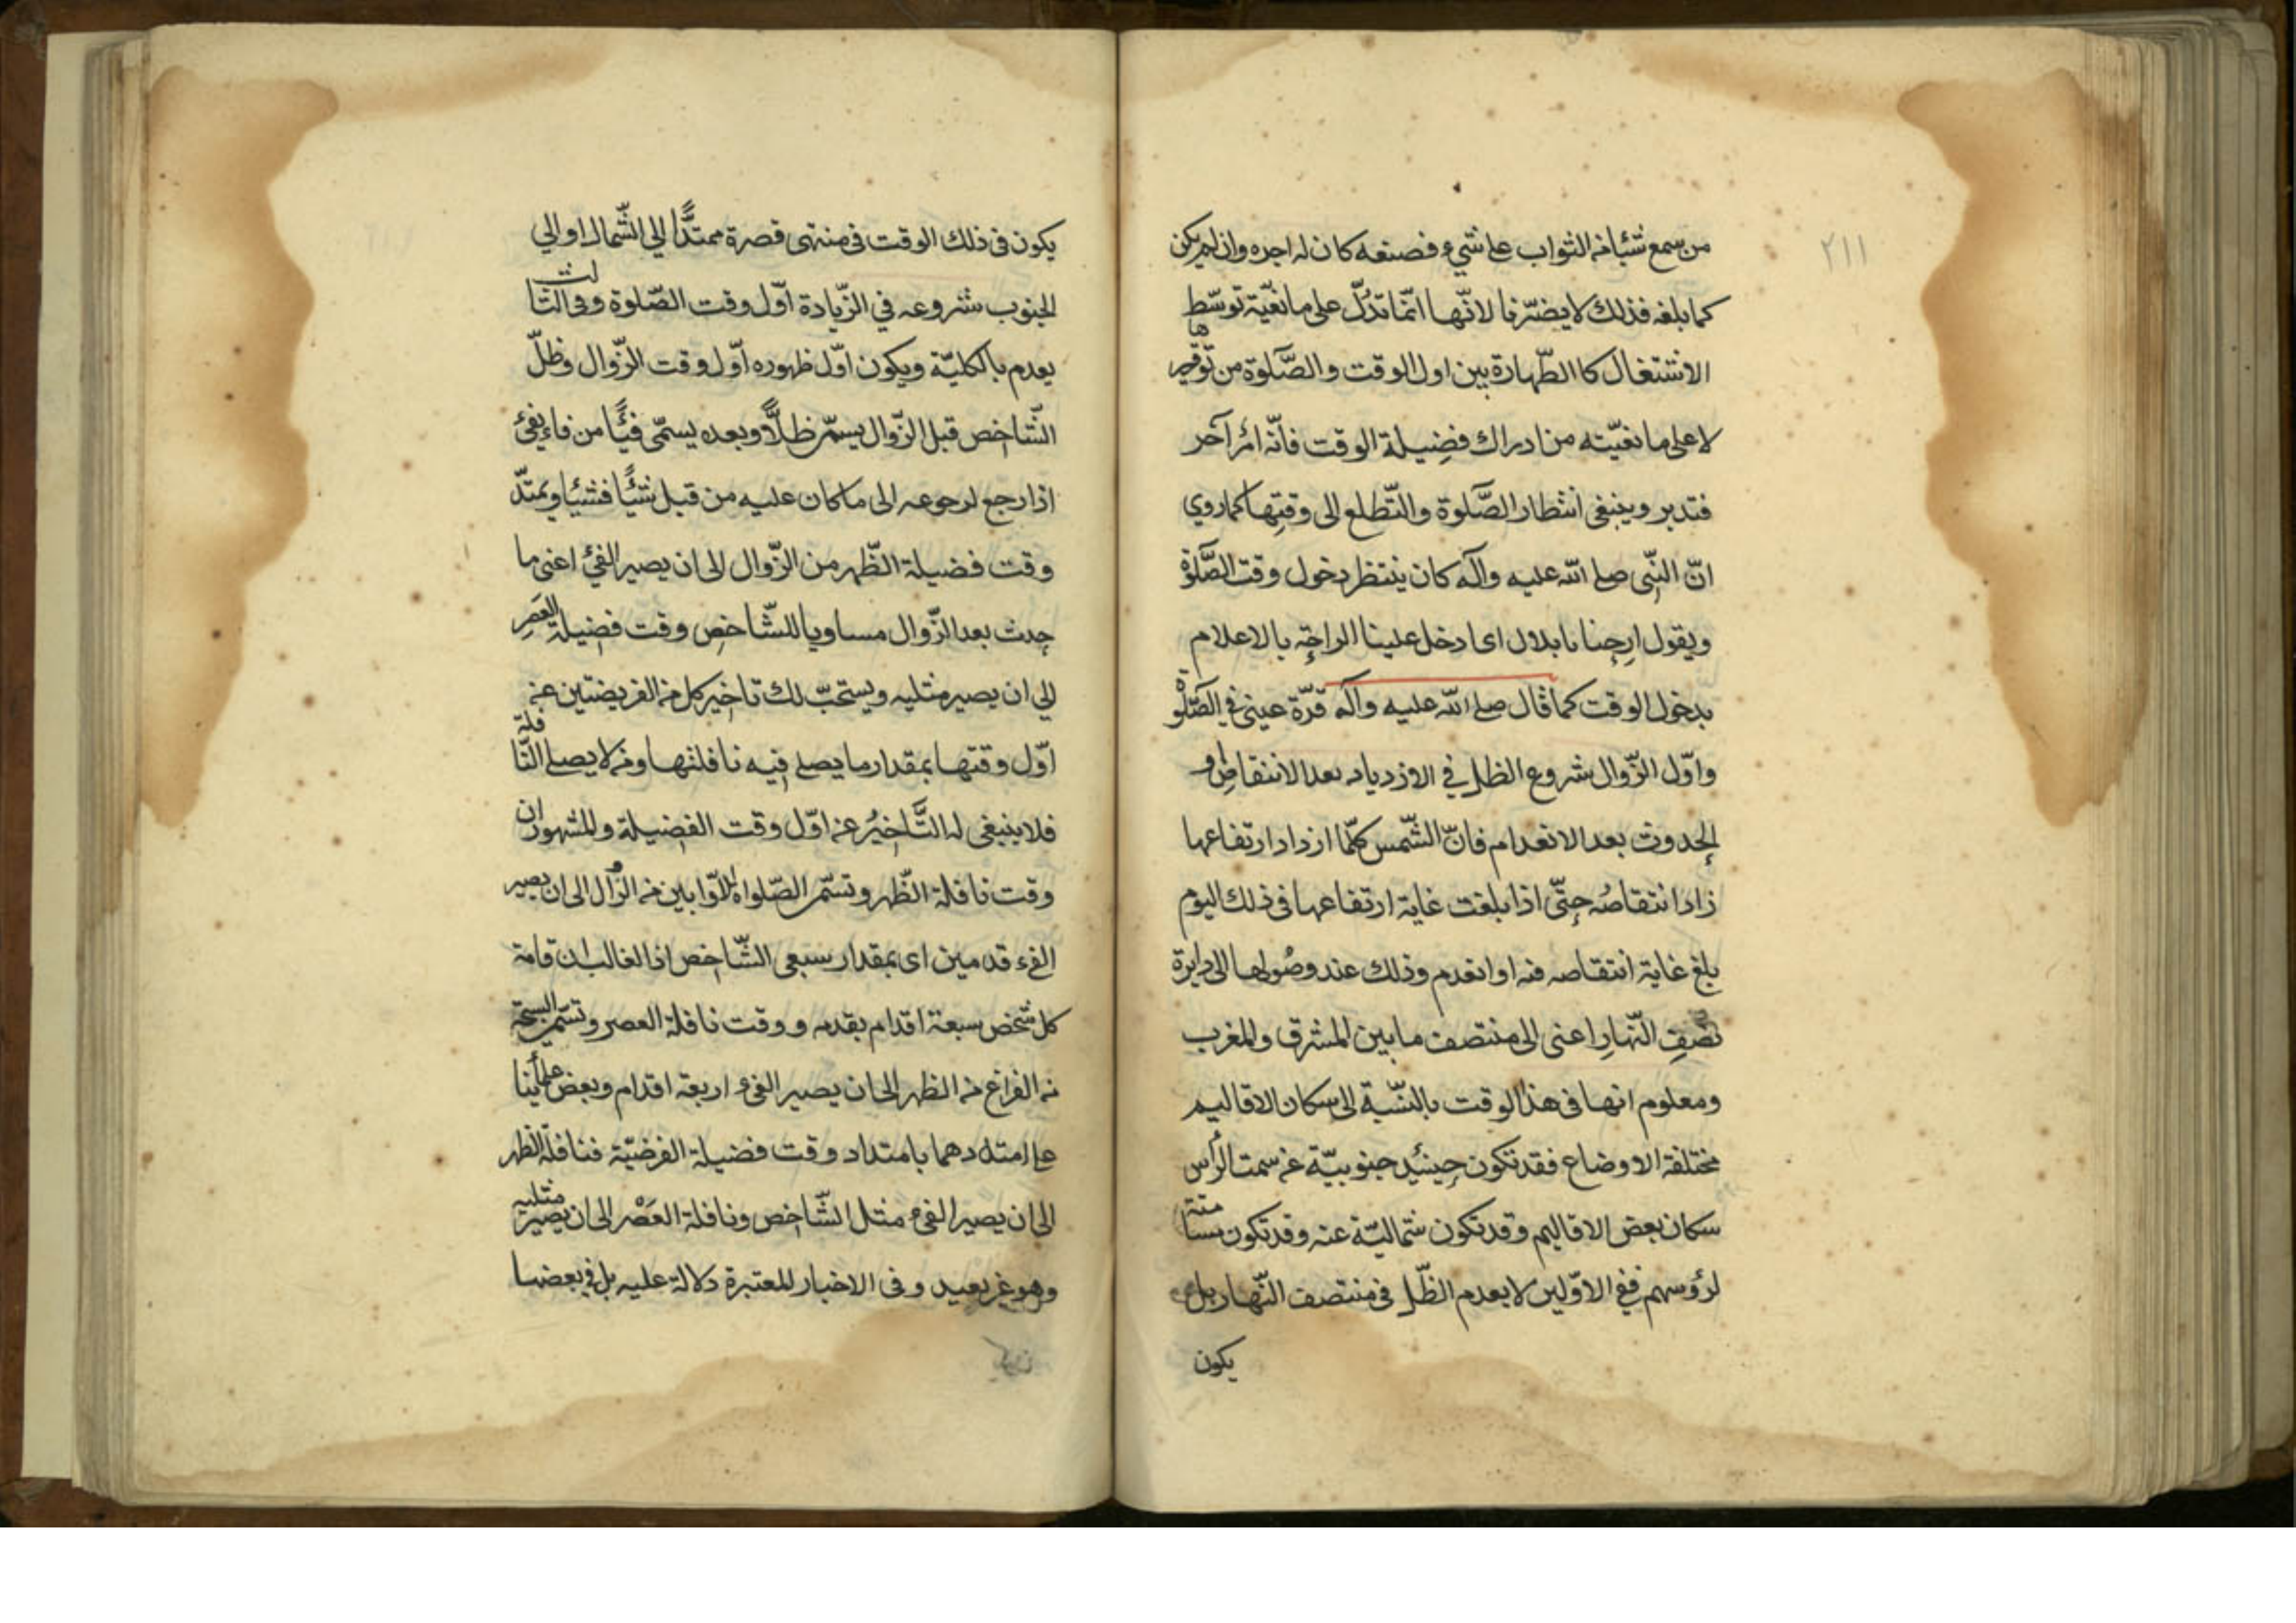 ٢١١
من سمع شيئا من الثواب على شيء فصنعه كان له اجره وان لم يكن
كما بلغه فذلك لا يضرّنا لانّها انّما تدلّ على ما نفيّة توسّط
الاشتغال كا الطّهارة بين اول الوقت والصّلوة من توقيرها
لا على ما نفيّته من ادراك فضيلة الوقت فانّه امر آخر
فتدبر وينبغى انتظار الصّلوة والتّطلع الى وقتها كما روي
انّ النّبى صلى الله عليه وآله كان ينتظر دخول وقت الصّلوة
ويقول ارحنا يا بلال اى ادخل علينا الراحة بالاعلام
بدخول الوقت كما قال صلى الله عليه وآله قرّة عينى في الصّلوة
واوّل الزّوال شروع الظل في الازدياد بعد الانتقاص او
الحدوث بعد الانعدام فانّ الشّمس كلّما ازداد ارتفاعها
زاد انتقاصه حتّى اذا بلغت غاية ارتفاعها فى ذلك اليوم
بلغ غاية انتقاصه فيه او انعدم وذلك عند وصولها الى دايرة
نصف النّهار اعنى الى منتصف ما بين المشرق والمغرب
ومعلوم انها فى هذا الوقت بالنّسبة الى سكان الاقاليم
مختلفة الاوضاع فقد تكون حينئذ جنوبيّة عن سمت الرأس
سكان بعض الاقاليم وقد تكون شماليّة عنه وقد تكون مسامتة
لرؤسهم ففى الاوّلين لا يعدم الظّل فى منتصف النّهار بل
يكون
يكون فى ذلك الوقت فى منتهى قصرة ممتدًّا الى الشّمال او الى
الجنوب شروعه في الزّيادة اوّل وقت الصّلوة وفى الثّالث
يعدم بالكليّة ويكون اوّل ظهوره اوّل وقت الزّوال وظلّ
الشّاخص قبل الزّوال يسمّى ظلًّا وبعده يسمّى فيئًا من فاء يفىء
اذا رجع لرجوعه الى ما كان عليه من قبل شيئًا فشيئا ويمتدّ
وقت فضيلة الظّهر من الزّوال الى ان يصير الفىء اعنى ما
حدث بعد الزّوال مساويا للشّاخص وقت فضيلة العصر
الى ان يصير مثليه ويستحبّ لك تاخير كل من الفريضتين عن
اوّل وقتها بمقدار ما يصلى فيه نافلتها ومن لا يصلى النّافلة
فلا ينبغى له التّاخير عن اوّل وقت الفضيلة والمشهور ان
وقت نافلة الظّهر وتسمّى الصّلواة الاوّابين من الزّوال الى ان يصير
الفىء قدمين اى بمقدار سبعى الشّاخص اذ الغالب ان قامة
كل شخص سبعة اقدام بقدمه ووقت نافلة العصر وتسمّى السبحة
من الفراغ من الظهر الى ان يصير الفىء اربعة اقدام وبعض علمائنا
على امتدادهما بامتداد وقت فضيلة الفرضيّة فنافلة الظهر
الى ان يصير الفىء مثل الشّاخص ونافلة العصر الى ان يصير مثليه
وهو غير بعيد وفى الاخبار المعتبرة دلالة عليه بل فى بعضها